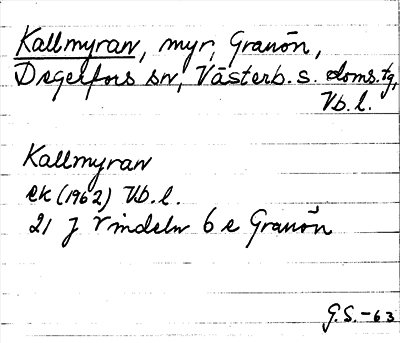 Kallmyran, myr, Granön,
Degerfors sn, Västerb. s. doms.tg,
Vb. l.
Kallmyran
ek (1962) Vb. l.
21 J Vindeln 6 e Granön
G.S. -63